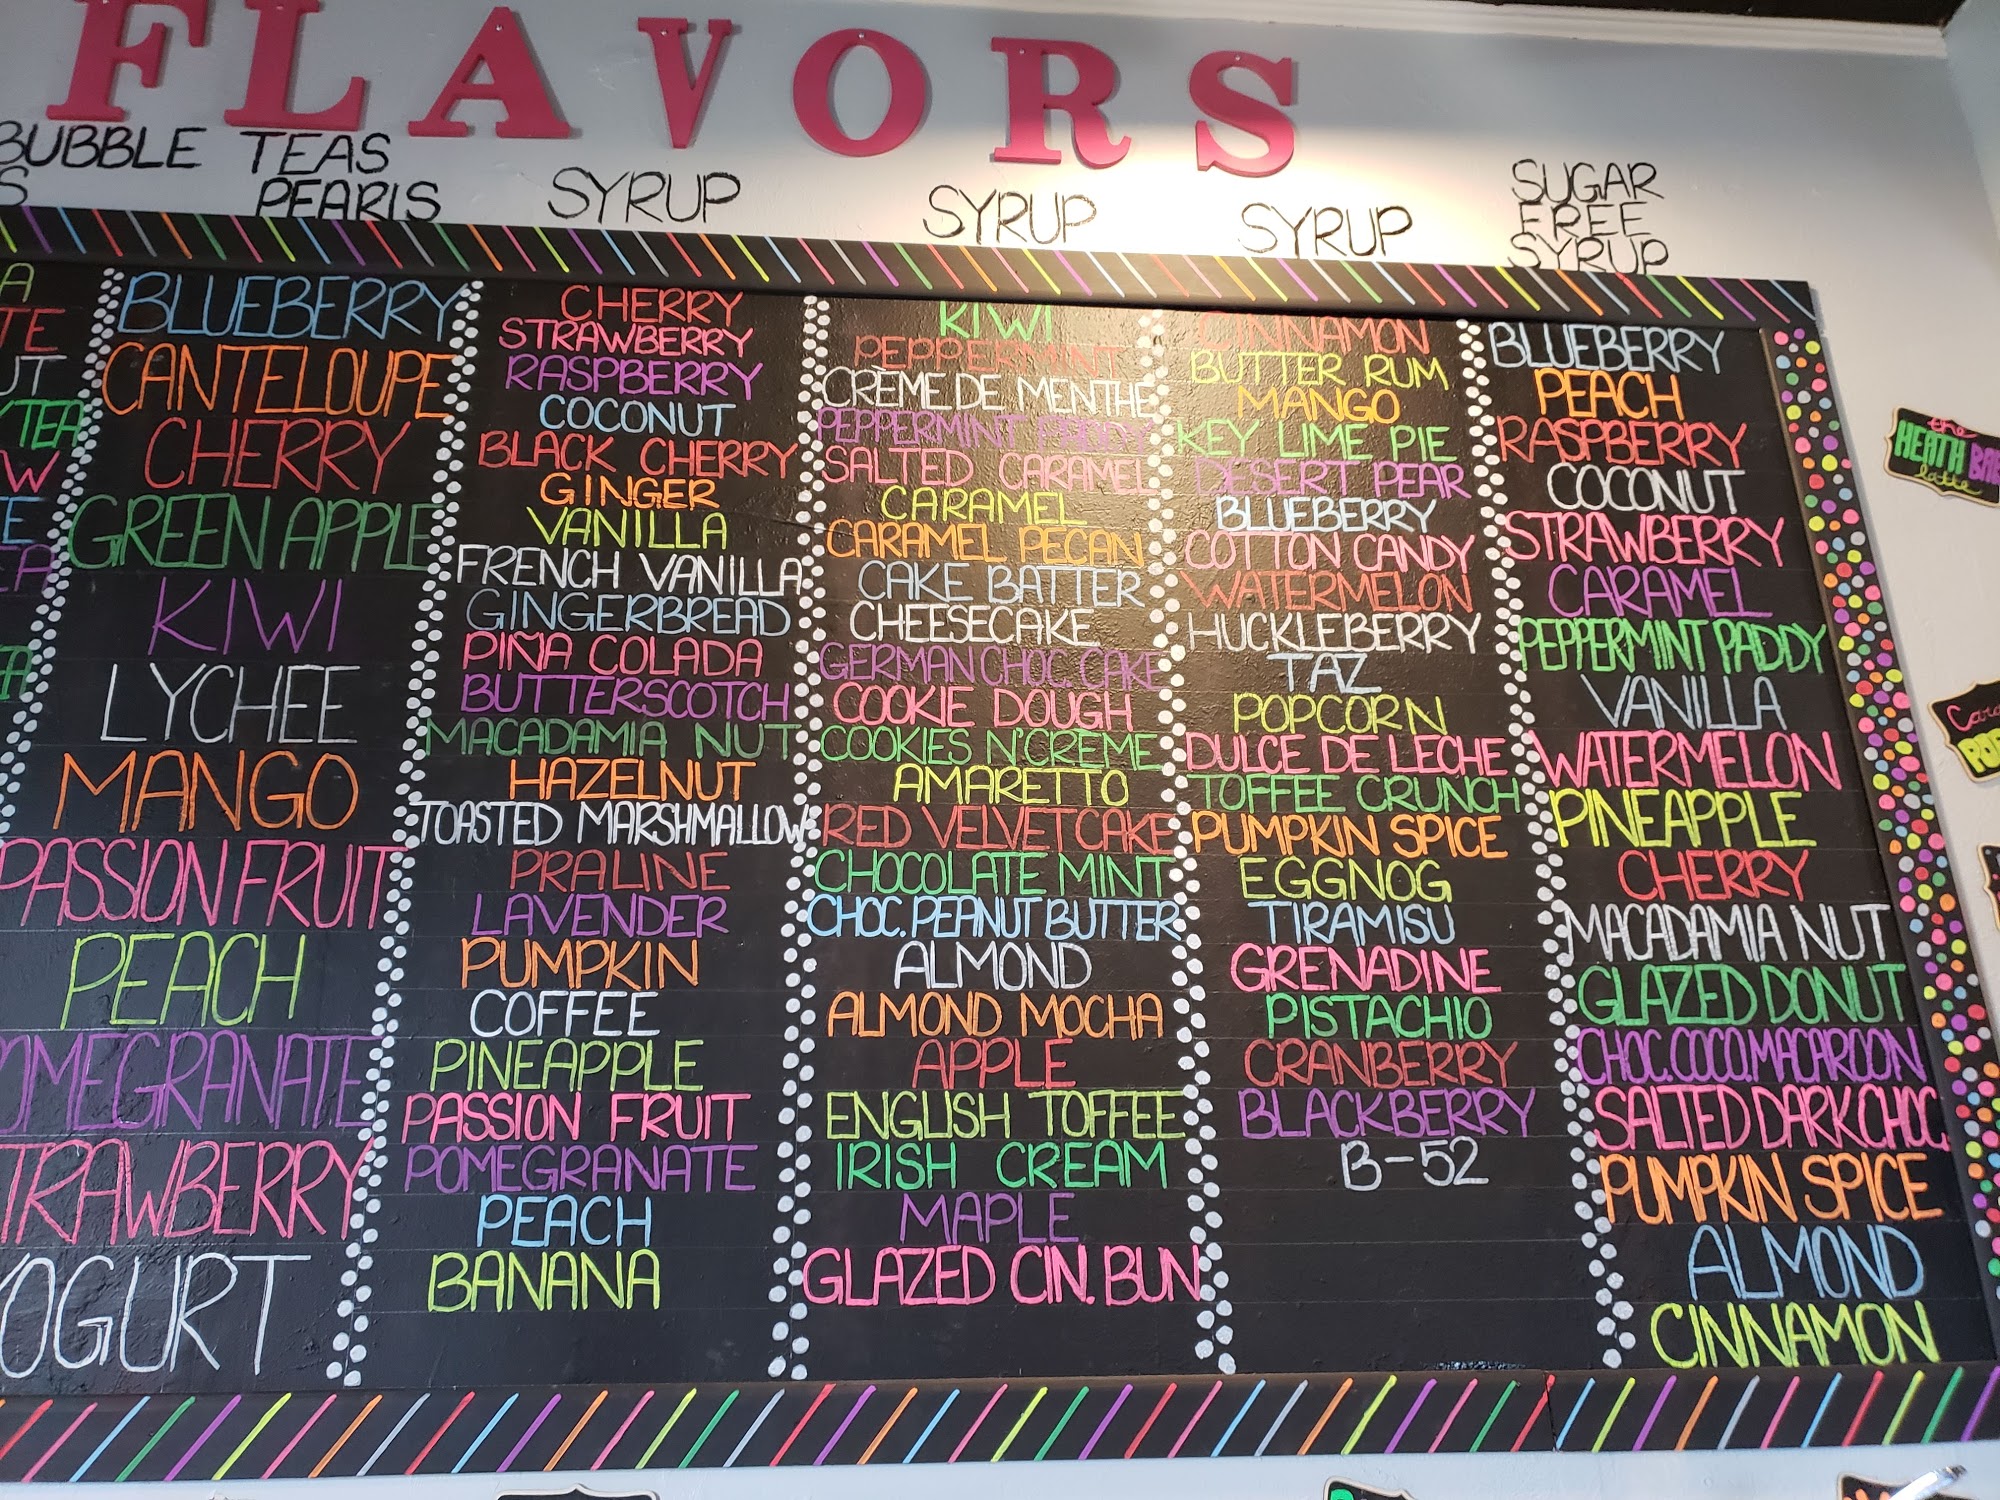 FLAVORS
BUBBLE TEAS
S PEARLS
SYRUP
SYRUP
SYRUP
SUGAR
FREE
SYRUP
A
TE
UT
TEA
W
E
EA
EA
BLUEBERRY
CANTELOUPE
CHERRY
GREEN APPLE
KIWI
LYCHEE
MANGO
PASSION FRUIT
PEACH
POMEGRANATE
TRAWBERRY
YOGURT
CHERRY
STRAWBERRY
RASPBERRY
COCONUT
BLACK CHERRY
GINGER
VANILLA
FRENCH VANILLA
GINGERBREAD
PIÑA COLADA
BUTTERSCOTCH
MACADAMIA NUT
HAZELNUT
TOASTED MARSHMALLOW
PRALINE
LAVENDER
PUMPKIN
COFFEE
PINEAPPLE
PASSION FRUIT
POMEGRANATE
PEACH
BANANA
KIWI
PEPPERMINT
CRÈME DE MENTHE
PEPPERMINT PADDY
SALTED CARAMEL
CARAMEL
CARAMEL PECAN
CAKE BATTER
CHEESECAKE
GERMAN CHOC. CAKE
COOKIE DOUGH
COOKIES N'CREME
AMARETTO
RED VELVET CAKE
CHOCOLATE MINT
CHOC. PEANUT BUTTER
ALMOND
ALMOND MOCHA
APPLE
ENGLISH TOFFEE
IRISH CREAM
MAPLE
GLAZED CIN. BUN
CINNAMON
BUTTER RUM
MANGO
KEY LIME PIE
DESERT PEAR
BLUEBERRY
COTTON CANDY
WATERMELON
HUCKLEBERRY
TAZ
POPCORN
DULCE DE LECHE
TOFFEE CRUNCH
PUMPKIN SPICE
EGGNOG
TIRAMISU
GRENADINE
PISTACHIO
CRANBERRY
BLACKBERRY
B-52
BLUEBERRY
PEACH
RASPBERRY
COCONUT
STRAWBERRY
CARAMEL
PEPPERMINT PADDY
VANILLA
WATERMELON
PINEAPPLE
CHERRY
MACADAMIA NUT
GLAZED DONUT
CHOC. COCO. MACAROON
SALTED DARK CHOC.
PUMPKIN SPICE
ALMOND
CINNAMON
the
HEATH BAR
latte